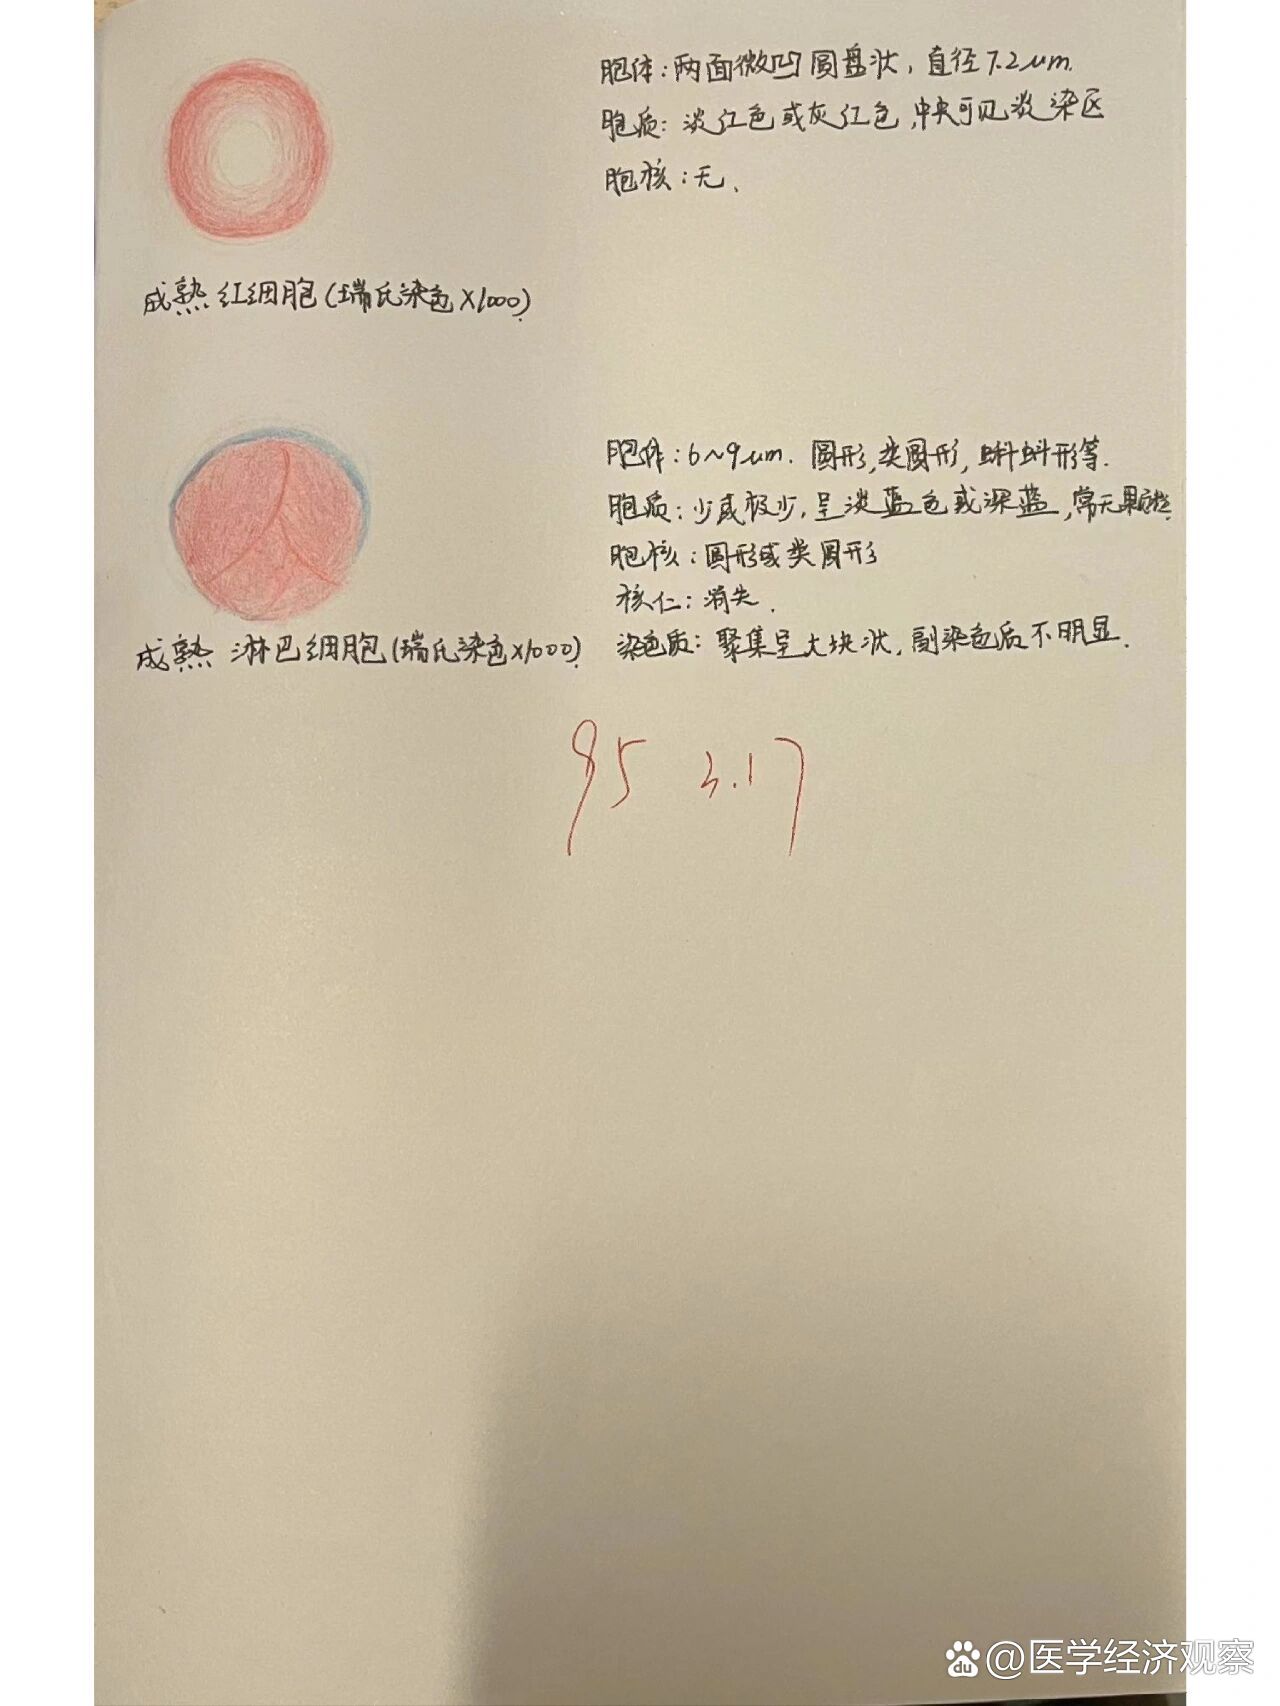 胞体：两面微凹圆盘状，直径7.2μm.
胞质：淡红色或灰红色,中央可见淡染区
胞核：无.
成熟红细胞(瑞氏染色×1000).
胞体：6~9μm. 圆形,类圆形,蝌蚪形等.
胞质：少或极少,呈淡蓝色或深蓝,常无颗粒.
胞核：圆形或类圆形
核仁：消失.
成熟淋巴细胞(瑞氏染色×1000).
染色质：聚集呈大块状,副染色后不明显.
95 3.17
@医学经济观察